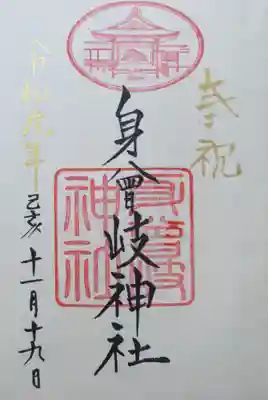 奉祝
身曾岐神社
令和元年己亥十一月十九日
身曾岐
神社